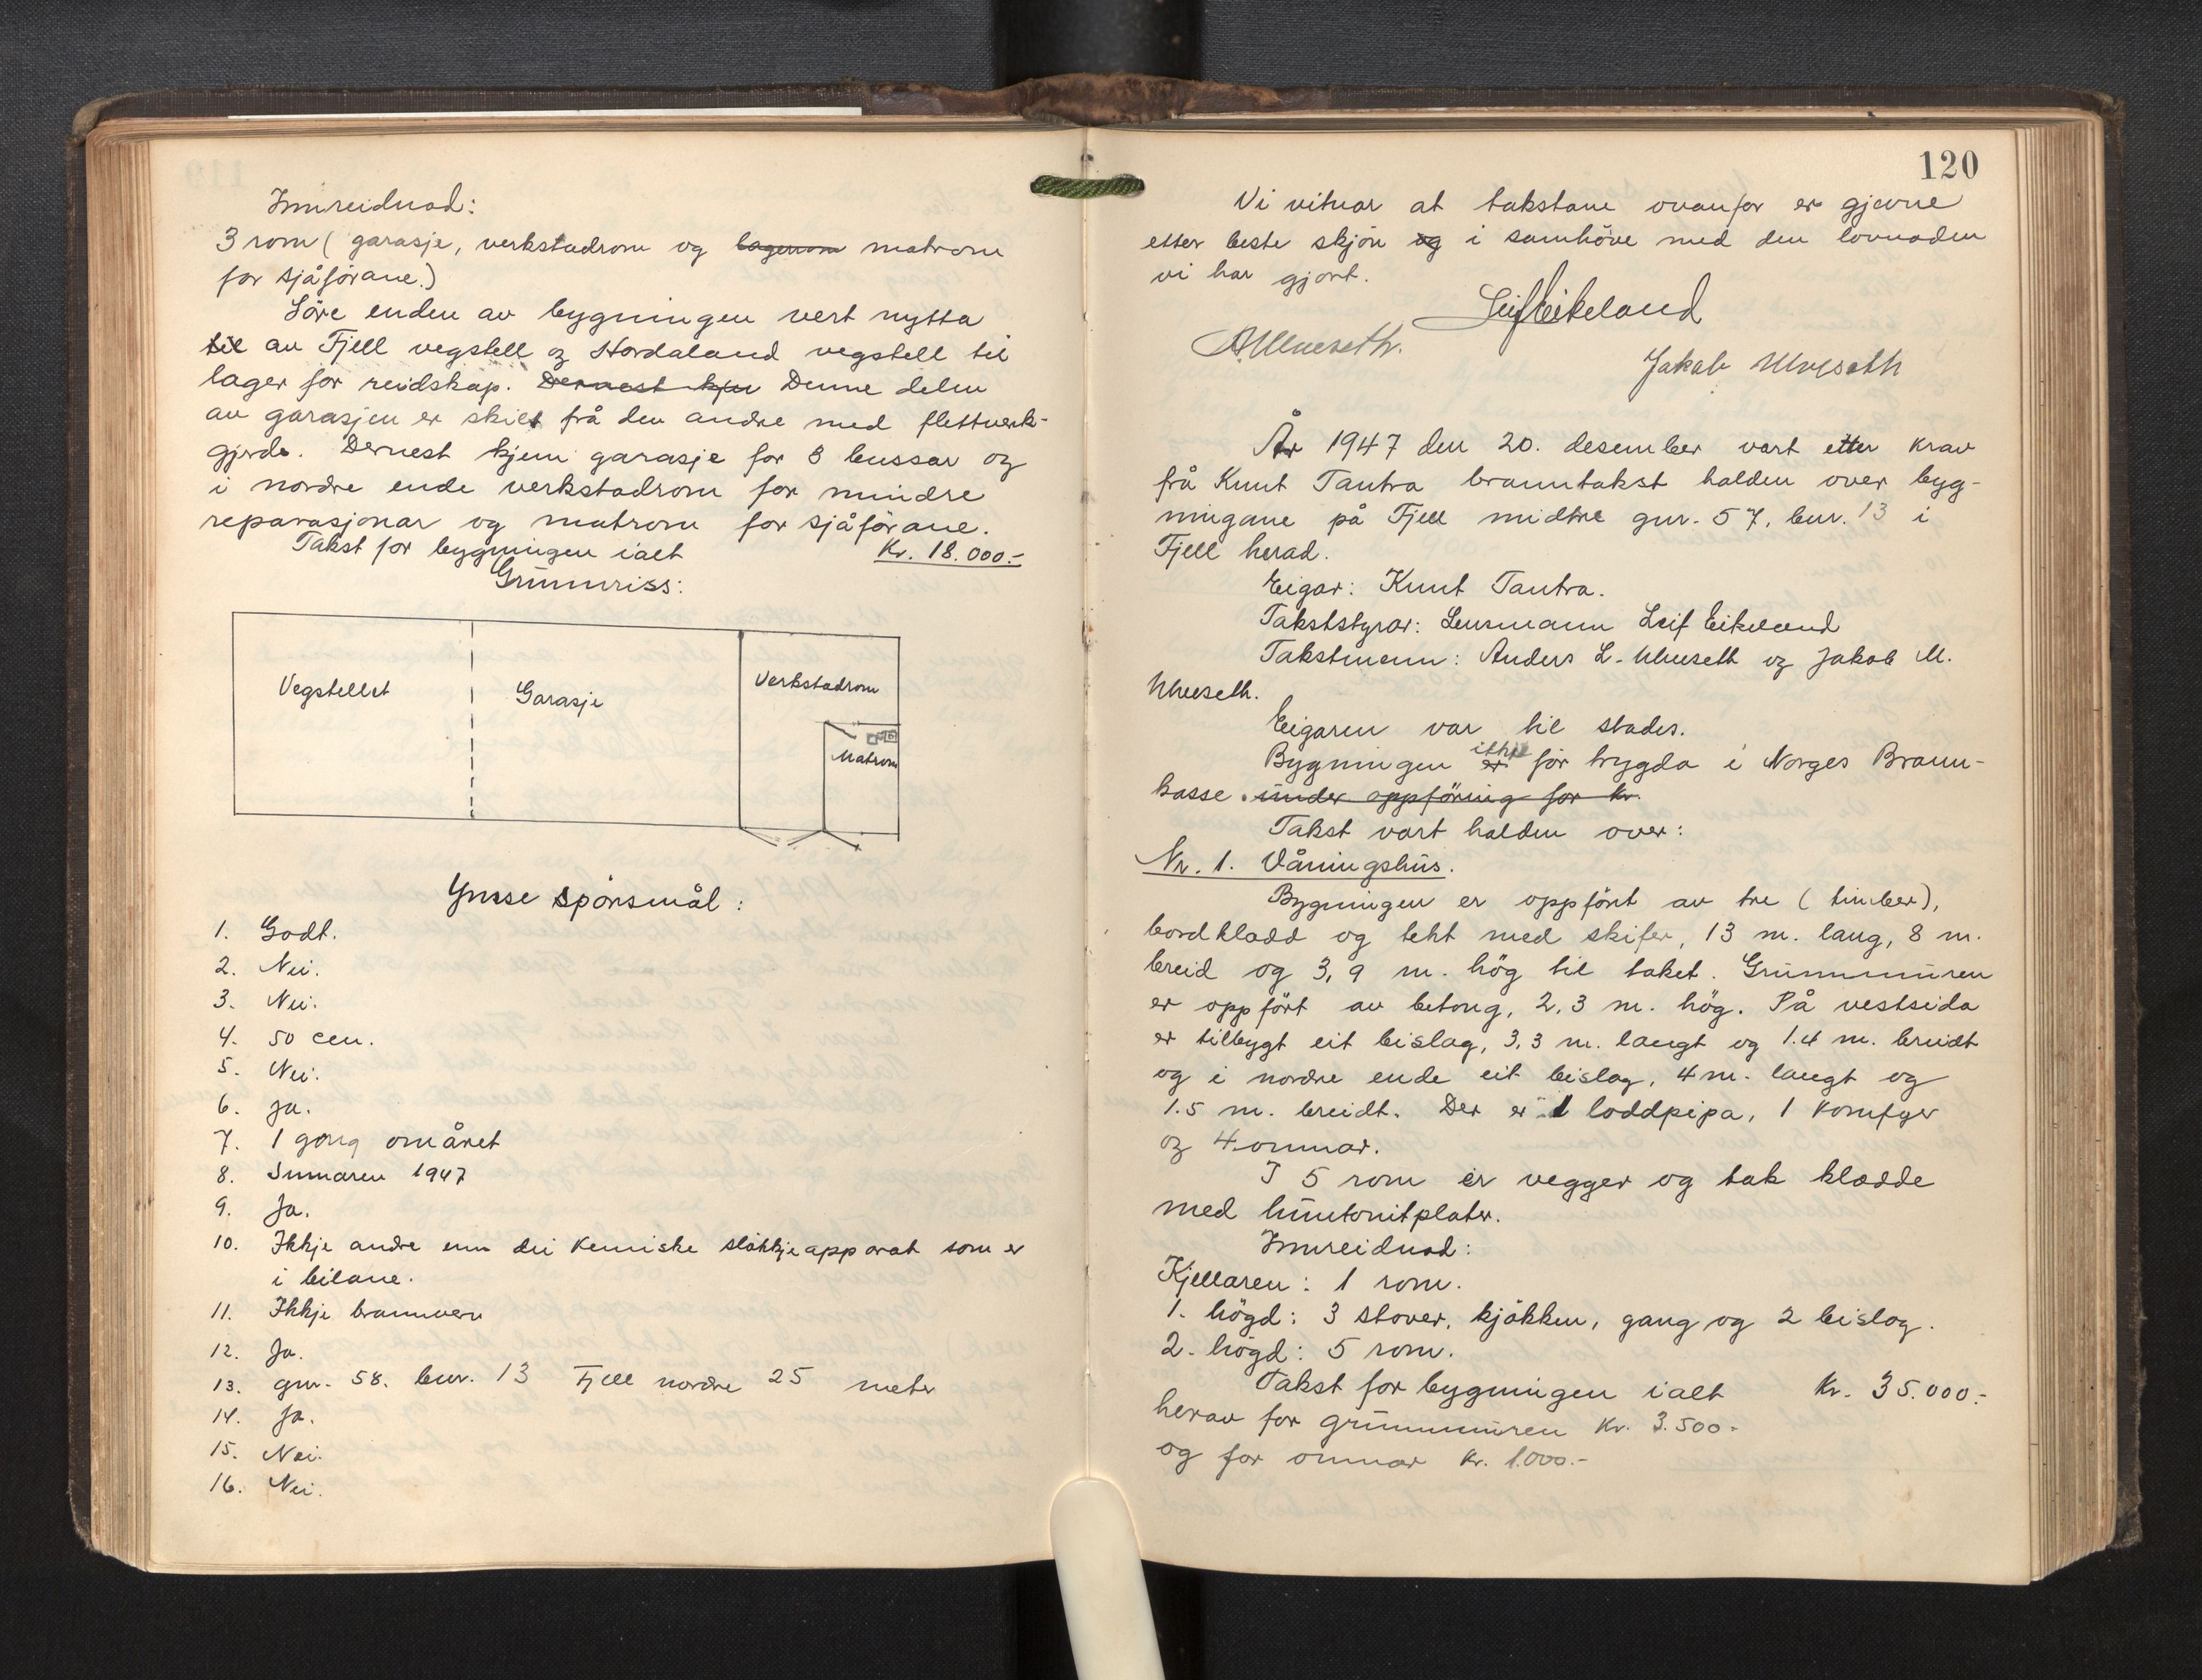 Innreidnad:
3 rom ( garasje, verkstadrom og lagerrom matrom
for sjåförane.)
Söre enden av bygningen vert nytta
til av Fjell vegstell og Hordaland vegstell til
lager for reidskap. Dernest kjem Denne delen
av garasjen er skilt frå den andre med flettverk-
gjerde. Dernest kjem garasje for 8 bussar og
i nordre ende verkstadrom for mindre
reparasjonar og matrom for sjåförane.
Takst for bygningen ialt Kr. 18.000.-
Grunnriss:
Vegstellet Garasje Verkstadrom
Matrom
Ymse spörsmål:
1. Godt.
2. Nei.
3. Nei.
4. 50 cm.
5. Nei.
6. Ja.
7. 1 gong om året
8. Sumaren 1947
9. Ja.
10. Ikkje andre enn dei kemiske slökkjeapparat som er
i bilane.
11. Ikkje brannvern
12. Ja.
13. gnr. 58. bnr. 13 Fjell nordre 25 meter
14. Ja.
15. Nei.
16. Nei.
120
Vi vitnar at takstane ovanfor er gjevne
etter beste skjön og i samhöve med den lovnaden
vi har gjort.
Leif Eikeland
A Ulveseth.
Jakob Ulveseth
År 1947 den 20. desember vart etter krav
frå Knut Tantra branntakst halden over byg-
ningane på Fjell midtre gnr. 57, bnr. 13 i
Fjell herad.
Eigar: Knut Tantra.
Takststyrar: Lensmann Leif Eikeland
Takstmenn: Anders L. Ulveseth og Jakob M.
Ulveseth.
Eigaren var til stades.
ikkje
Bygningen er för trygda i Norges Brann-
kasse. under oppföring for kr.
Takst vart halden over:
Nr. 1. Våningshus.
Bygningen er oppfört av tre ( timber),
bordkledd og tekt med skifer, 13 m. lang, 8 m.
breid og 3,9 m. hög til taket. Grunnmuren
er oppfört av betong, 2,3 m. hög. På vestsida
er tilbygt eit bislag, 3,3 m. langt og 1.4 m. breidt
og i nordre ende eit bislag, 4 m. langt og
1.5 m. breidt. Der er 1 loddpipa, 1 komfyr
og 4 omnar.
I 5 rom er vegger og tak kledde
med huntonitplater.
Innreidnad:
Kjellaren: 1 rom.
1. högd: 3 stover, kjökken, gang og 2 bislag.
2. högd: 5 rom.
Takst for bygningen ialt Kr. 35.000.-
herav for grunnmuren Kr. 3.500.-
og for omnar Kr. 1.000.-